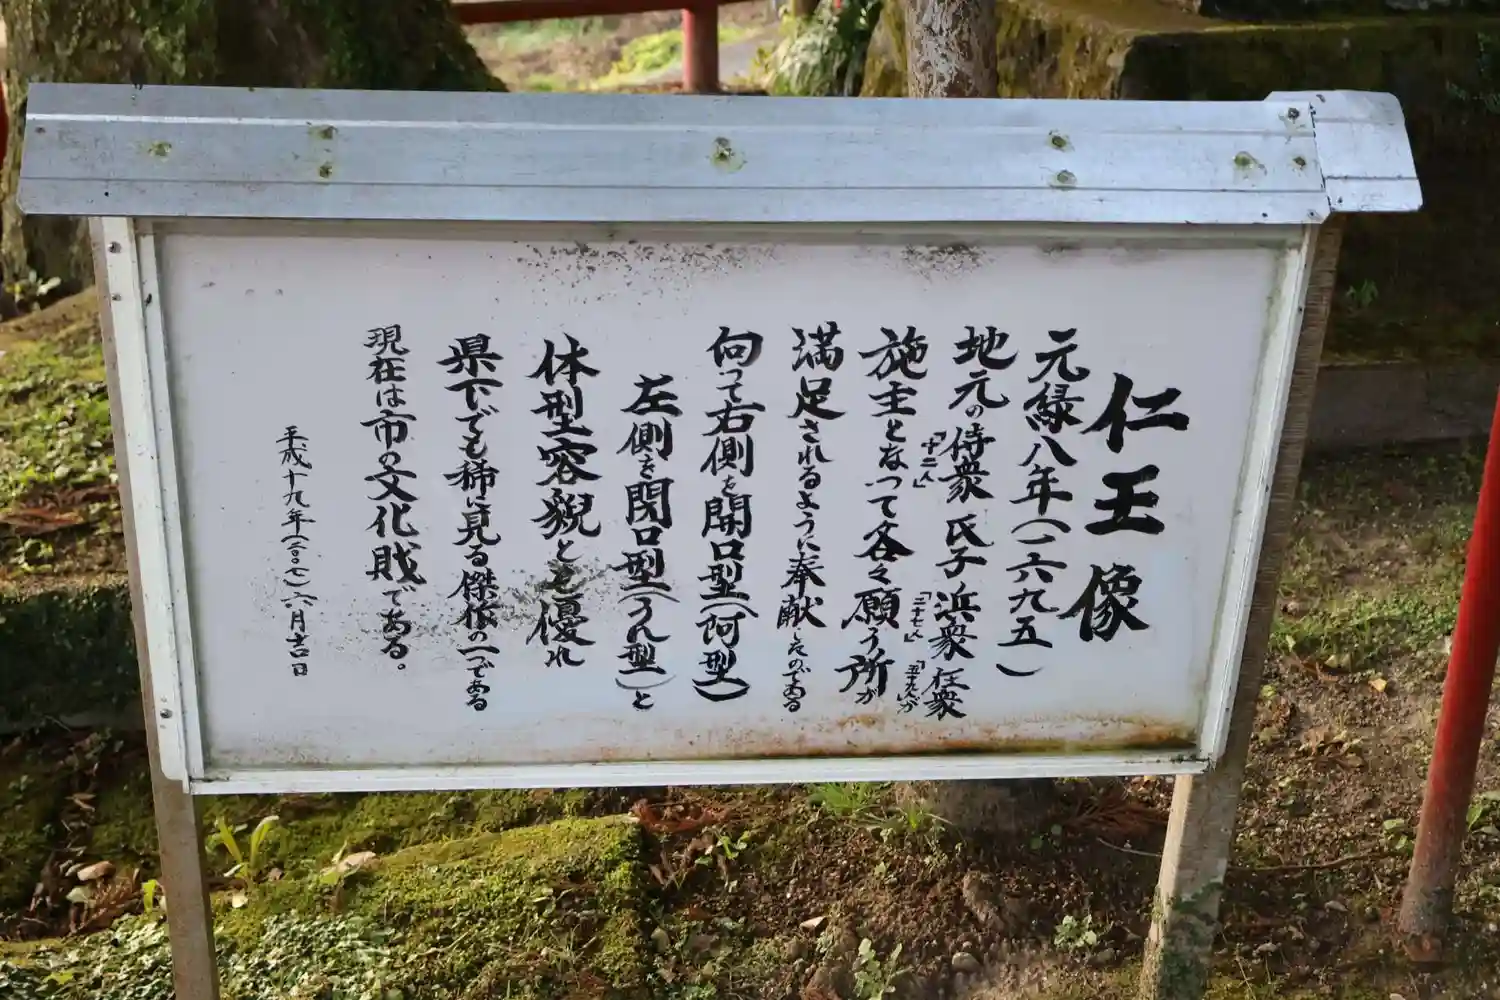 仁王像
元緑八年(一六九五)
地元の侍衆「十二人」氏子浜衆「二十七人」在衆「五十九人」が
施主となって各々願う所が
満足されるように奉献したのである
向って右側を開口型(阿型)
左側を閉口型(うん型)と
体型容貌とも優れ
県下でも稀に見る傑作の一である
現在は市の文化財である。
平成十九年(二〇〇七)六月吉日